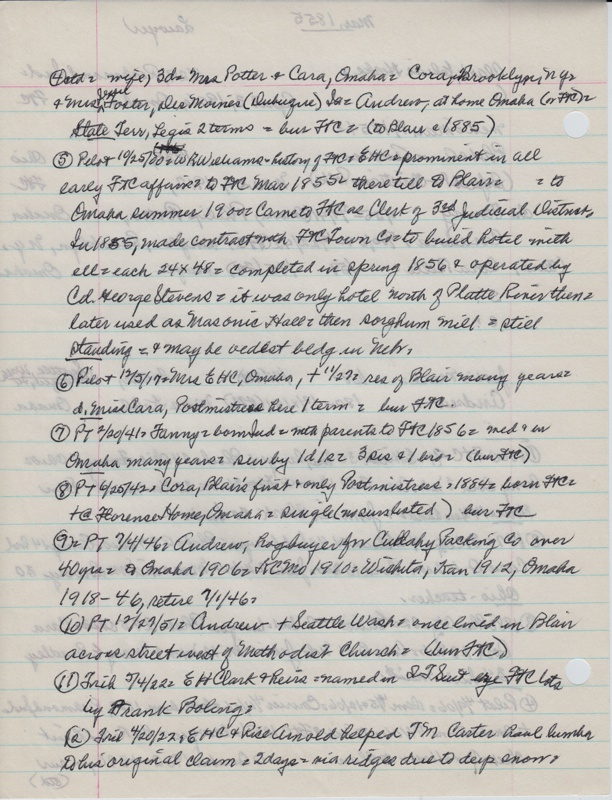 wife, 3d = Mrs Potter & Cara, Omaha = Cora, Brooklyn, NY =
& Mrs Jessie Foster, Des Moines (Dubuque) Ia = Andrew, at home Omaha (or FtC) =
State Terr, Legis 2 terms = bur FtC = (to Blair c 1885)
(5) Pilot 10/25/00 = W R Williams = history of FtC = EHC = prominent in all
early FtC affairs = to FtC Mar 1855 = there till to Blair = = to
Omaha summer 1900 = Came to FtC as Clerk of 3rd Judicial District,
In 1855, made contract with FtC Town Co = to build hotel with
ell = each 24 x 48 = completed in spring 1856 & operated by
Col. George Stevens = it was only hotel north of Platte River then =
later used as Masonic Hall = then sorghum mill = still
standing = & may be oldest bldg in Nebr.
(6) Pilot 12/5/17 = Mrs EHC, Omaha, + 11/27 = res of Blair many years =
d. Miss Cara, Postmistress here 1 term = bur FtC.
(7) PT 2/20/41 = Fanny = born Ind = with parents to FtC 1856 = med & in
Omaha many years = surv by 1d 1s = 3 sis & 1 bro = (bur FtC)
(8) PT 6/25/42 = Cora, Blair's first & only Postmistress = 1884 = born FtC =
+ @ Florence Home, Omaha = single (no surv listed) bur FtC
(9) = PT 7/4/46 = Andrew, Hog buyer for Cudahy Packing Co over
40 yrs = @ Omaha 1906 = KC Mo 1910 = Wichita, Kan 1912, Omaha
1918 - 46, retire 7/1/46 =
(10) PT 12/27/51 = Andrew + Seattle Wash = once lived in Blair
across street west of Methodist Church = (bur FtC)
(11) Trib 5/4/22 = E H Clark & Heirs = named in Suit FtC lots
by Frank Boling =
(12) Trib 4/20/22 = EHC & Rice Arnold helped T M Carter haul lumber
to his original claim = 2 days = via ridges due to deep snow =